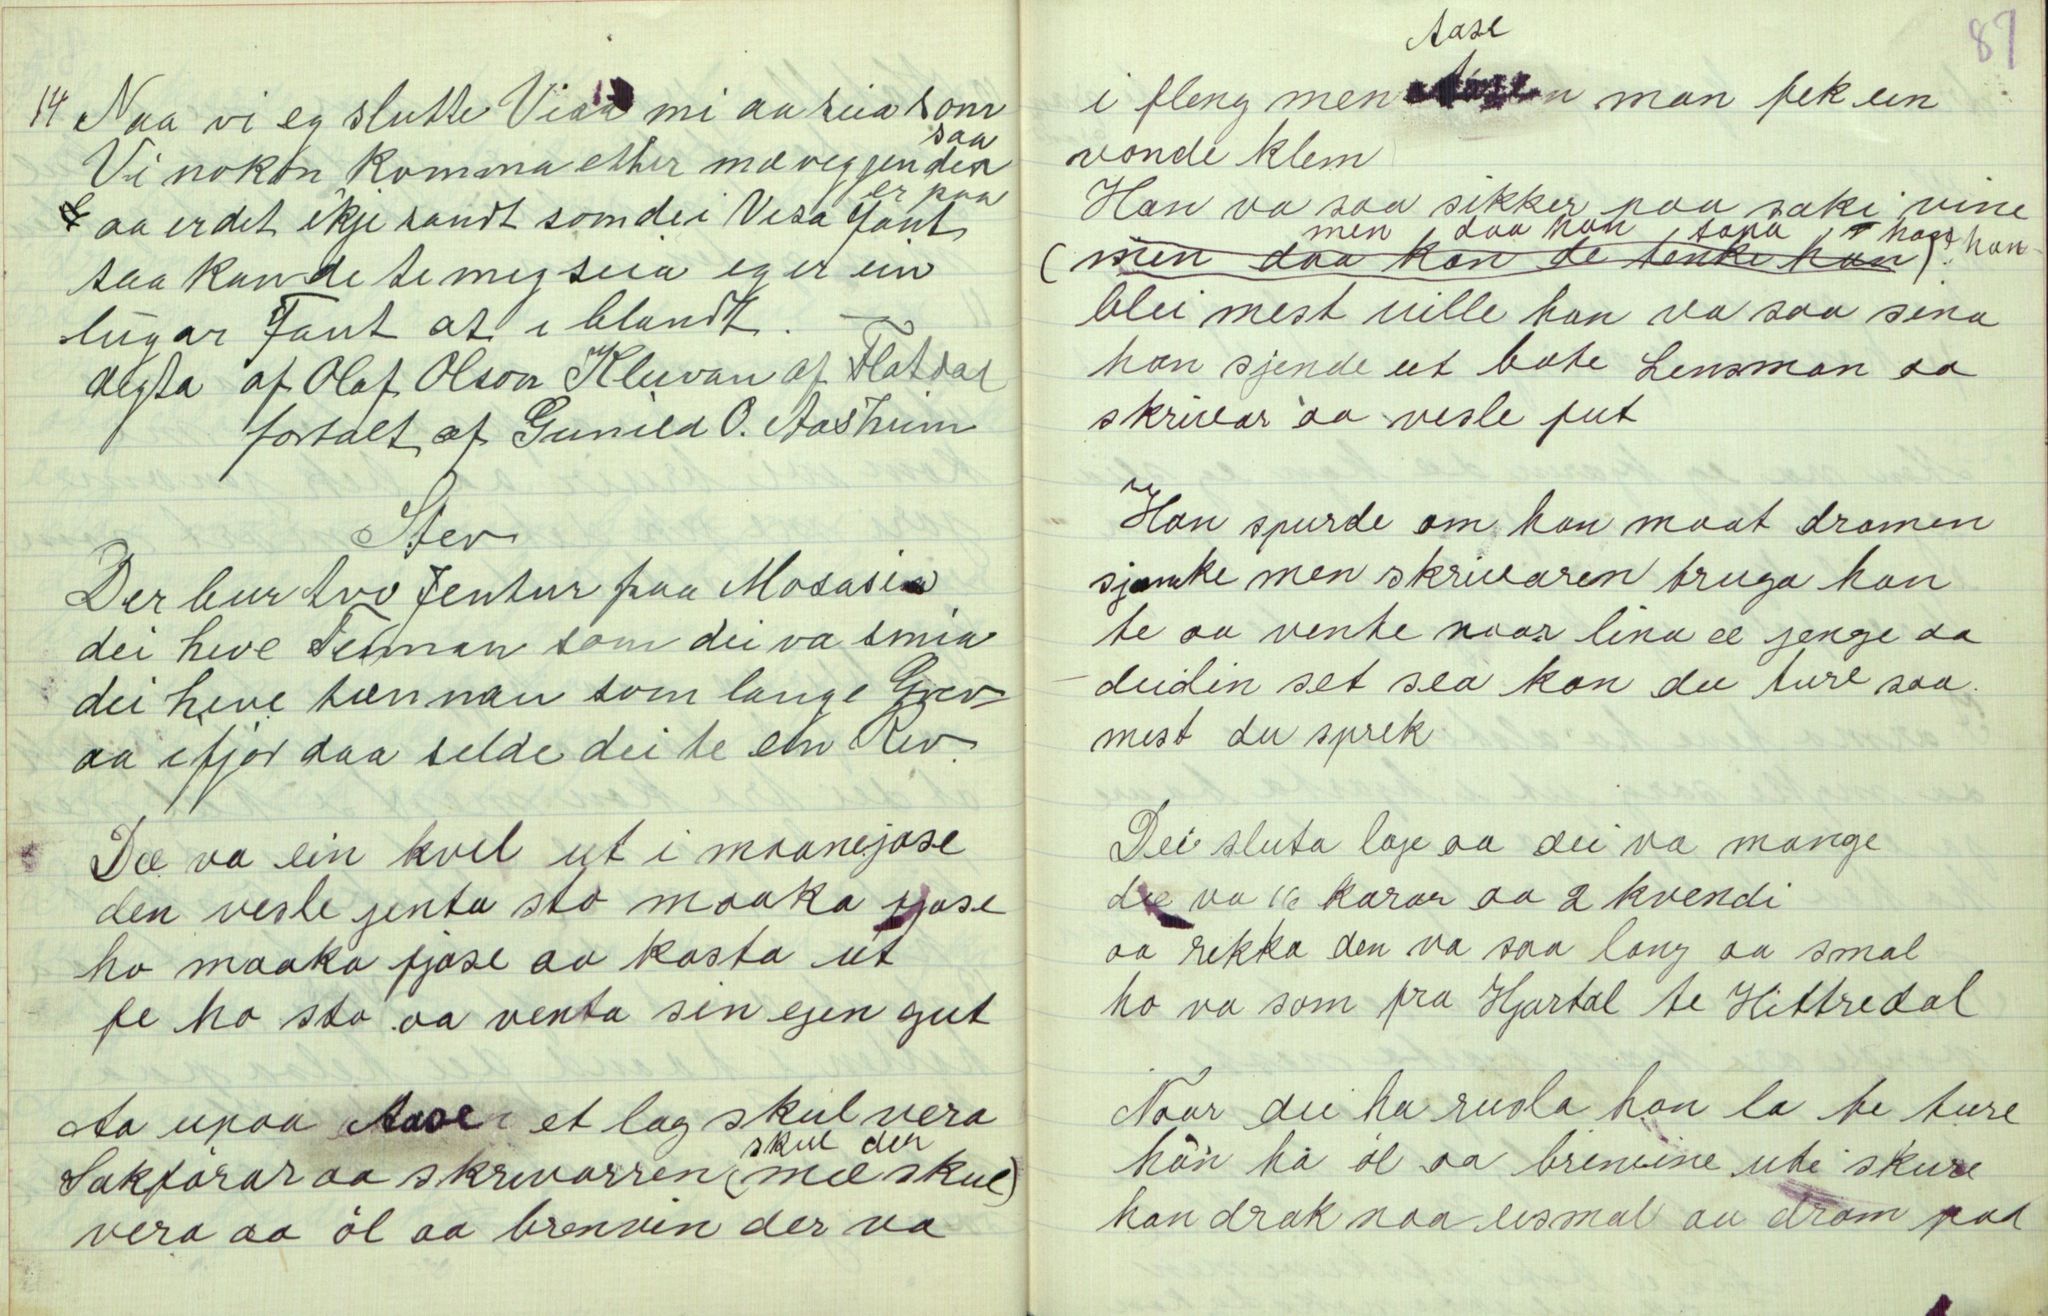 14 Naa vi eg slutte Visa mi aa seia som
saa
Vi nokon komma etter mæ veggen den
er paa
& aa er det ikje sandt som dei Visa Fant
saa kan de te meg seia eg er ein
lugar Fant at i blandt. —
degta af Olaf Olson Kleivan af Flatdal
fortalt af Gunild O. Aasheim
Stev
Der bur tvo Jentur paa Mosasia
dei heve Teman som dei va smia
dei heve tænnan som lange Grev
aa i fjor daa selde dei te ein Rev.
Dæ va ein kvel ut i maanejase
den vesle jenta sto maaka fjase
ho maaka fjase aa kasta ut
fe ho sto aa venta sin egen gut
ta upaa Aase et lag skul vera
skul der
Sakførar aa skrivarren (mæ skul)
vera aa öl aa brenvin der va
87
Aase
i fleng men man fek ein
vonde klem
Han va saa sikker paa saki vine
men daa han tapa hast han
(men daa kan de tenke han)
blei mest ville han va saa sina
han sjende ut bate Lensman aa
skrivar aa vesle put
Han spurde om han maat dramen
sjænke men skrivaren truga han
te aa vente naar lina æ jenge aa
deidin set sea kan du ture saa
mest du sprek
Dei sluta lage aa dei va mange
dæ va 16 karar aa 2 kvendi
aa rekka den va saa lang aa smal
ho va som fra Hjartdal te Hittredal
Naar dei ha rusla han la te ture
han ha öl aa brenvine uti skure
han drak naa eismal aa dram paa